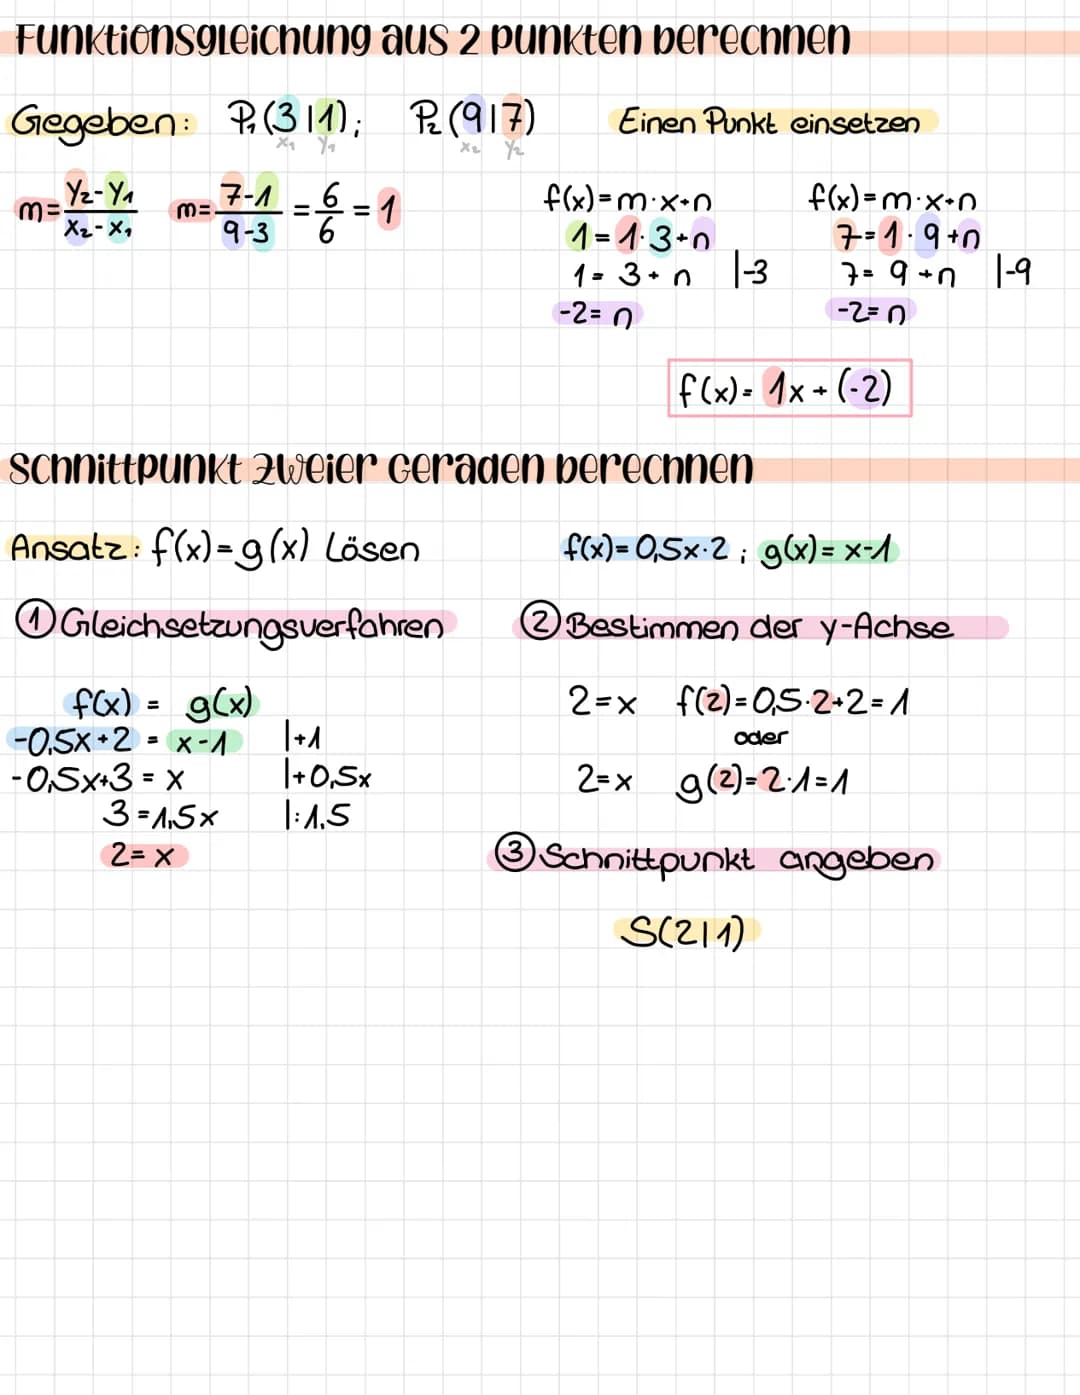 Funktionsgleichung aus 2 punkten berechnen
Gegeben: P₁(3|1); P₂(9|7)
x₁ y₁ x₂ y₂
m=(y₂-y₁)/(x₂-x₁) m=(7-1)/(9-3) = 6/6 = 1
Einen Punkt einsetzen
f(x)=m·x+n
1=1·3+n
1=3+n |-3
-2=n
f(x)=m·x+n
7=1·9+n
7=9+n |-9
-2=n
f(x)=1x+(-2)
Schnittpunkt zweier Geraden berechnen
Ansatz: f(x)=g(x) Lösen
f(x)=0,5x·2; g(x)=x-1
① Gleichsetzungsverfahren
f(x) = g(x)
-0,5x+2 = x-1 |+1
-0,5x+3 = x |+0,5x
3=1,5x |:1,5
2=x
② Bestimmen der y-Achse
2=x f(2)=0,5·2+2=1
oder
2=x g(2)=2·1=1
③ Schnittpunkt angeben
S(2|1)